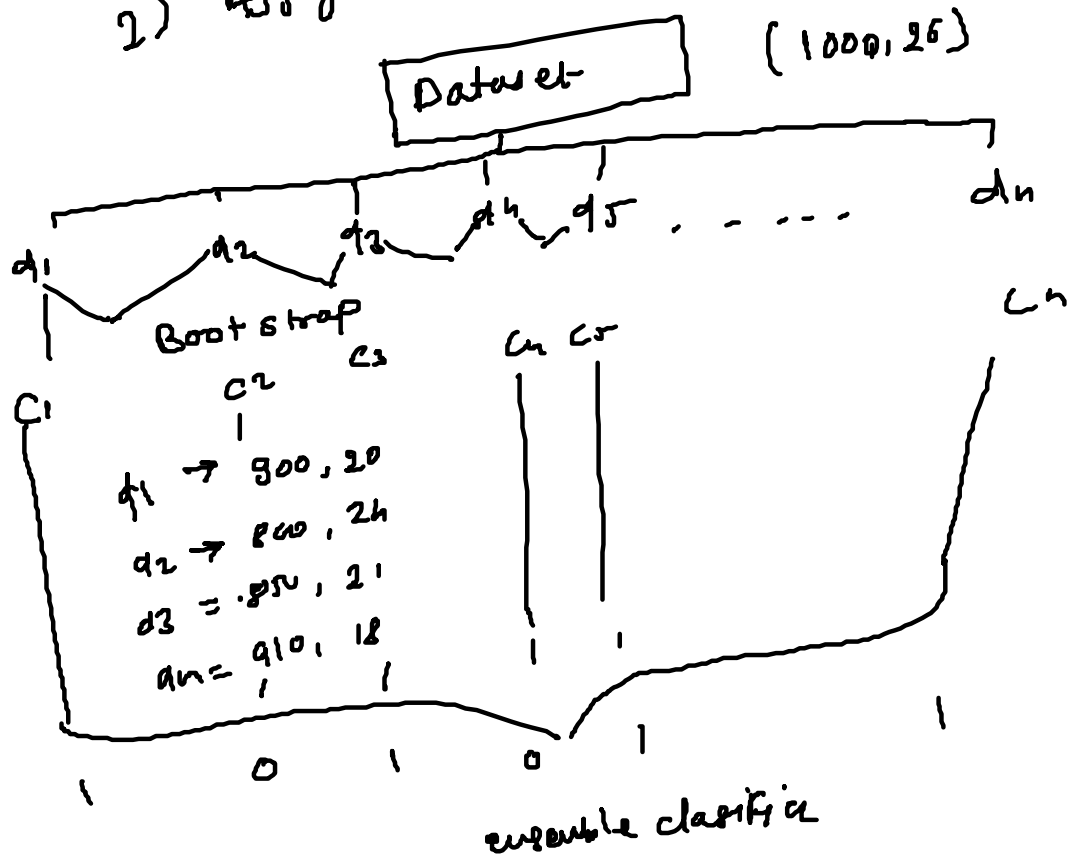 2)
Dataset
(1000, 25)
d1 d2 d3 d4 d5 dn
Bootstrap
C1 C2 C3 C4 C5 Cn
d1 → 900, 20
d2 → 800, 24
d3 = 850, 21
dn = 910, 18
1 1 1 1
1 0 1 0 1 1
ensemble clasifi